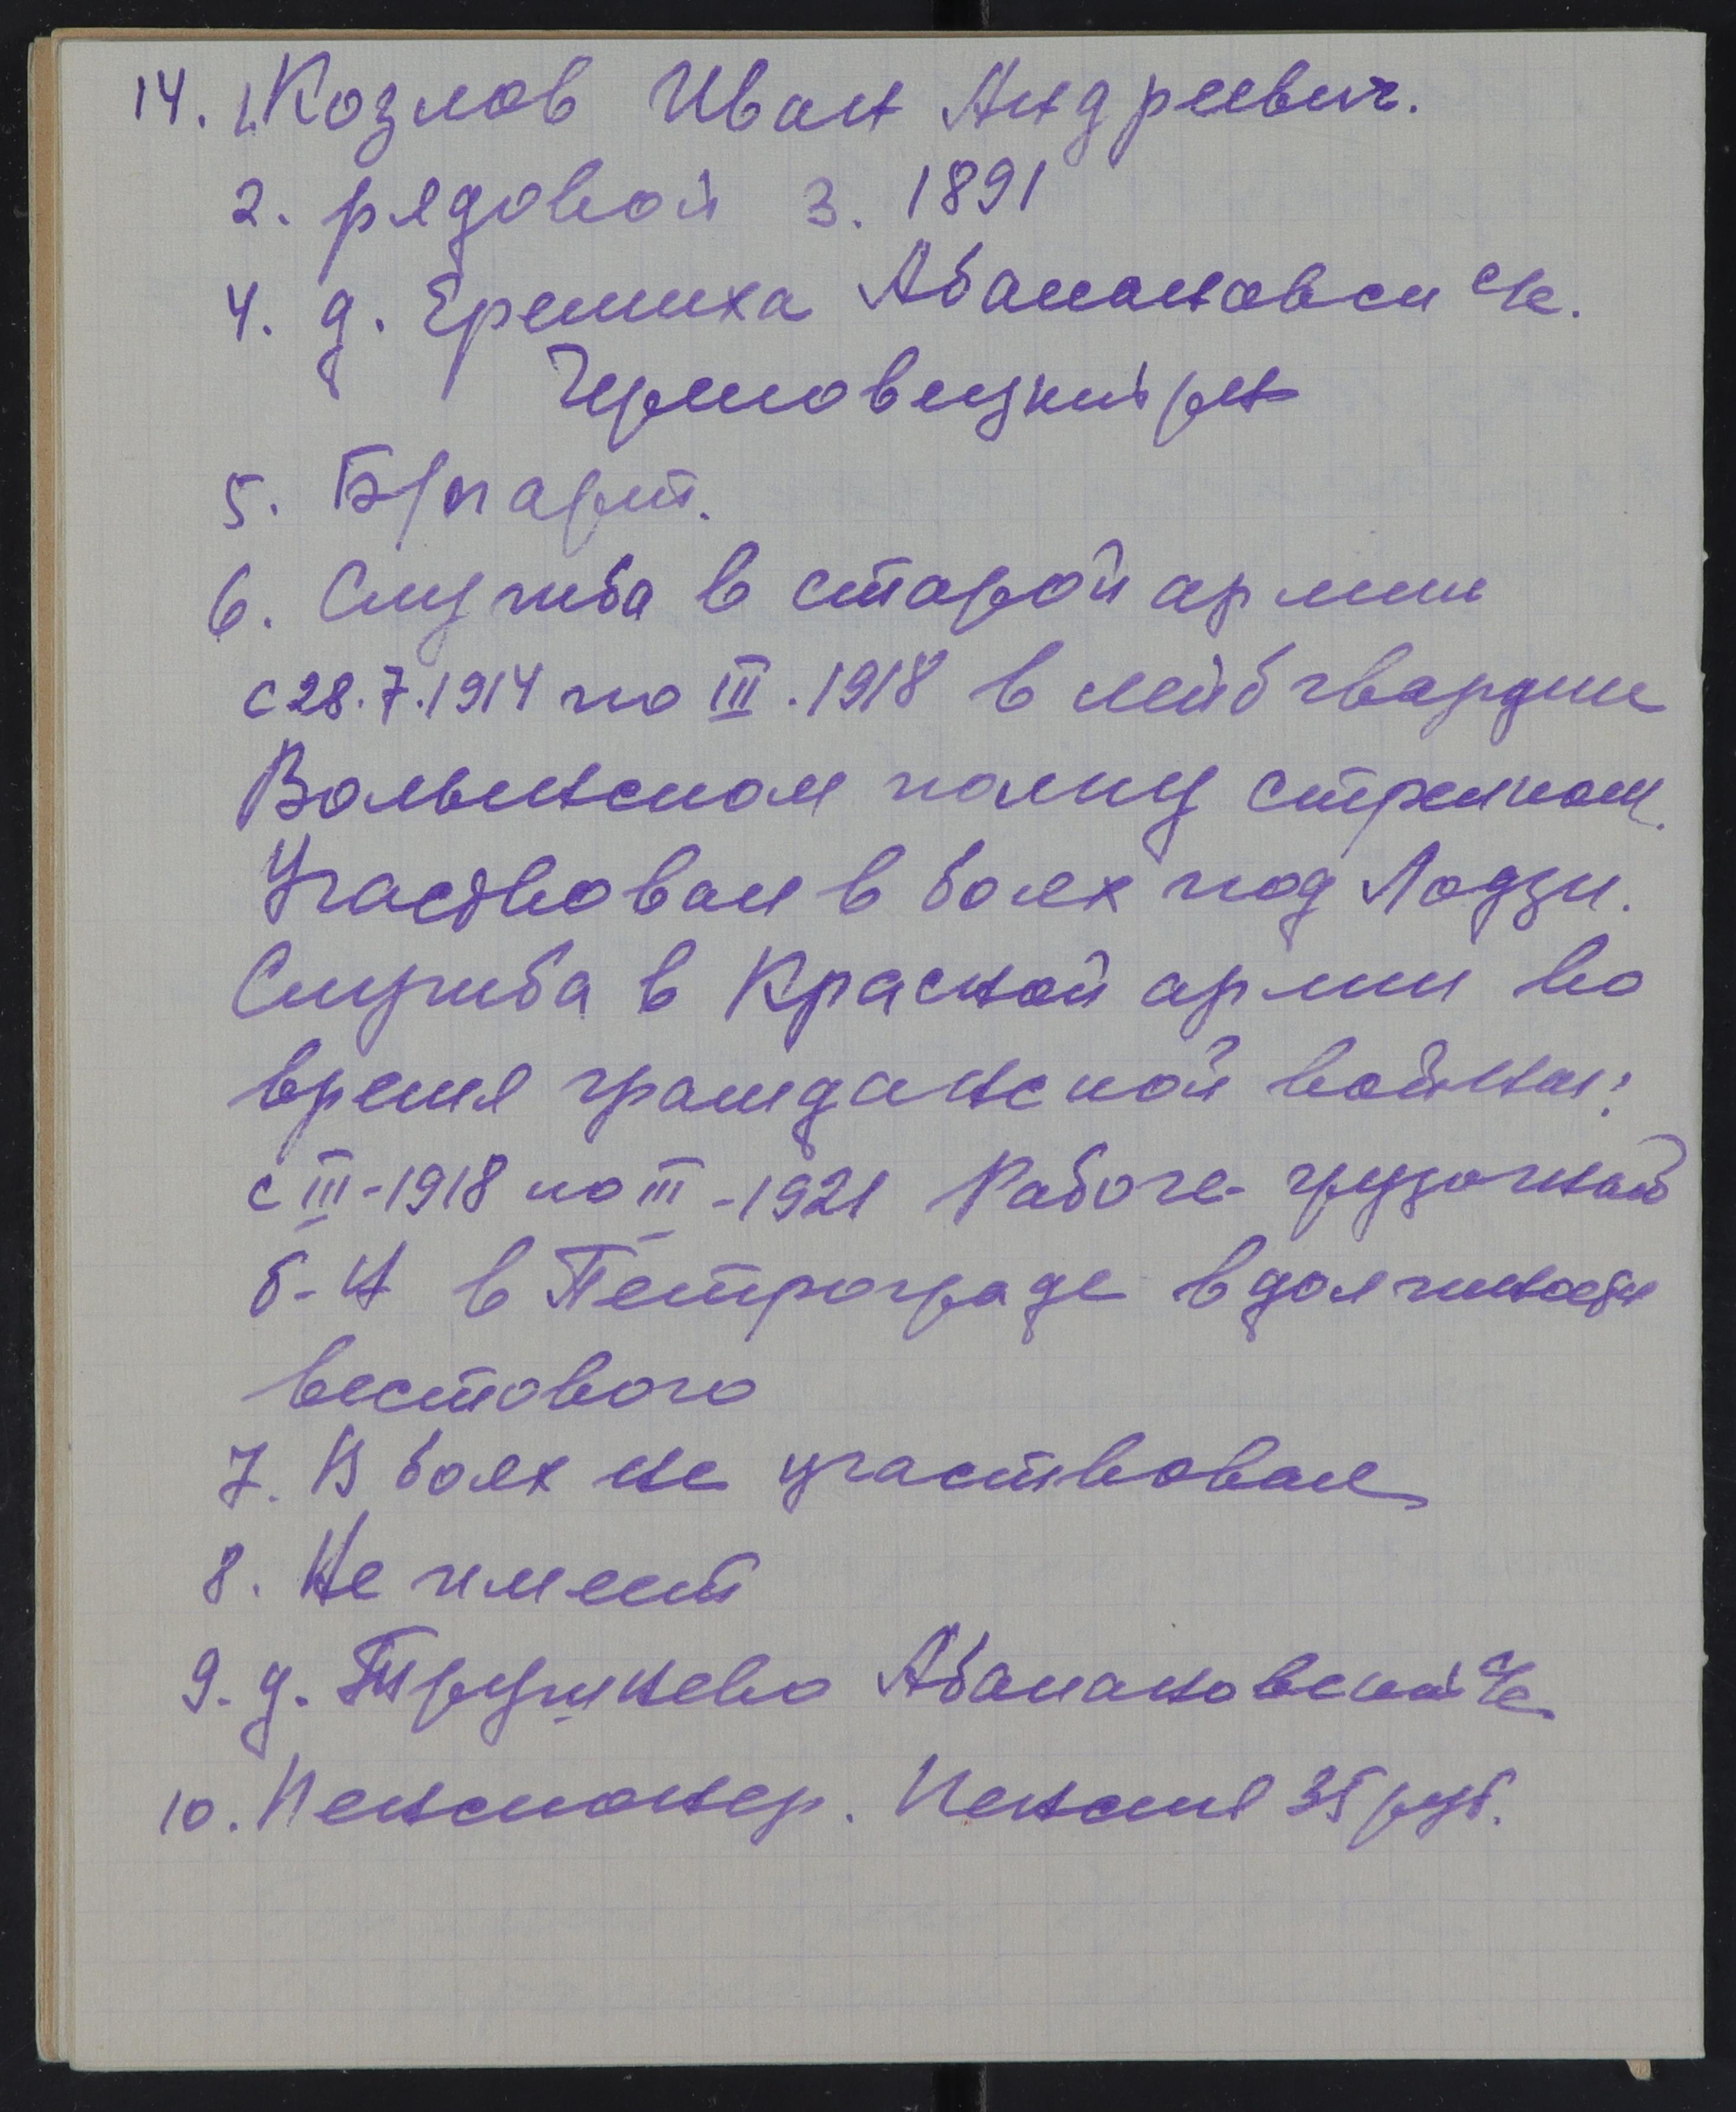 14. 1. Козлов Иван Андреевич.
2. рядовой 3. 1891
4. д. Еремиха Абакановск с/с.
Череповецкий р-н
5. Б/парт.
6. Служба в старой армии
с 28.7.1914 по III.1918 в лейб гвардии
Волынском полку стрелком.
Участвовал в боях под Лодзи.
Служба в Красной армии во
время гражданской войны:
с III-1918 по III-1921 Рабоче-грузочный
б-н в Петрограде в должности
вестового
7. В боях не участвовал
8. Не имеет
9. д. Абакановский с/с
10. Пенсионер. Пенсия 35 руб.